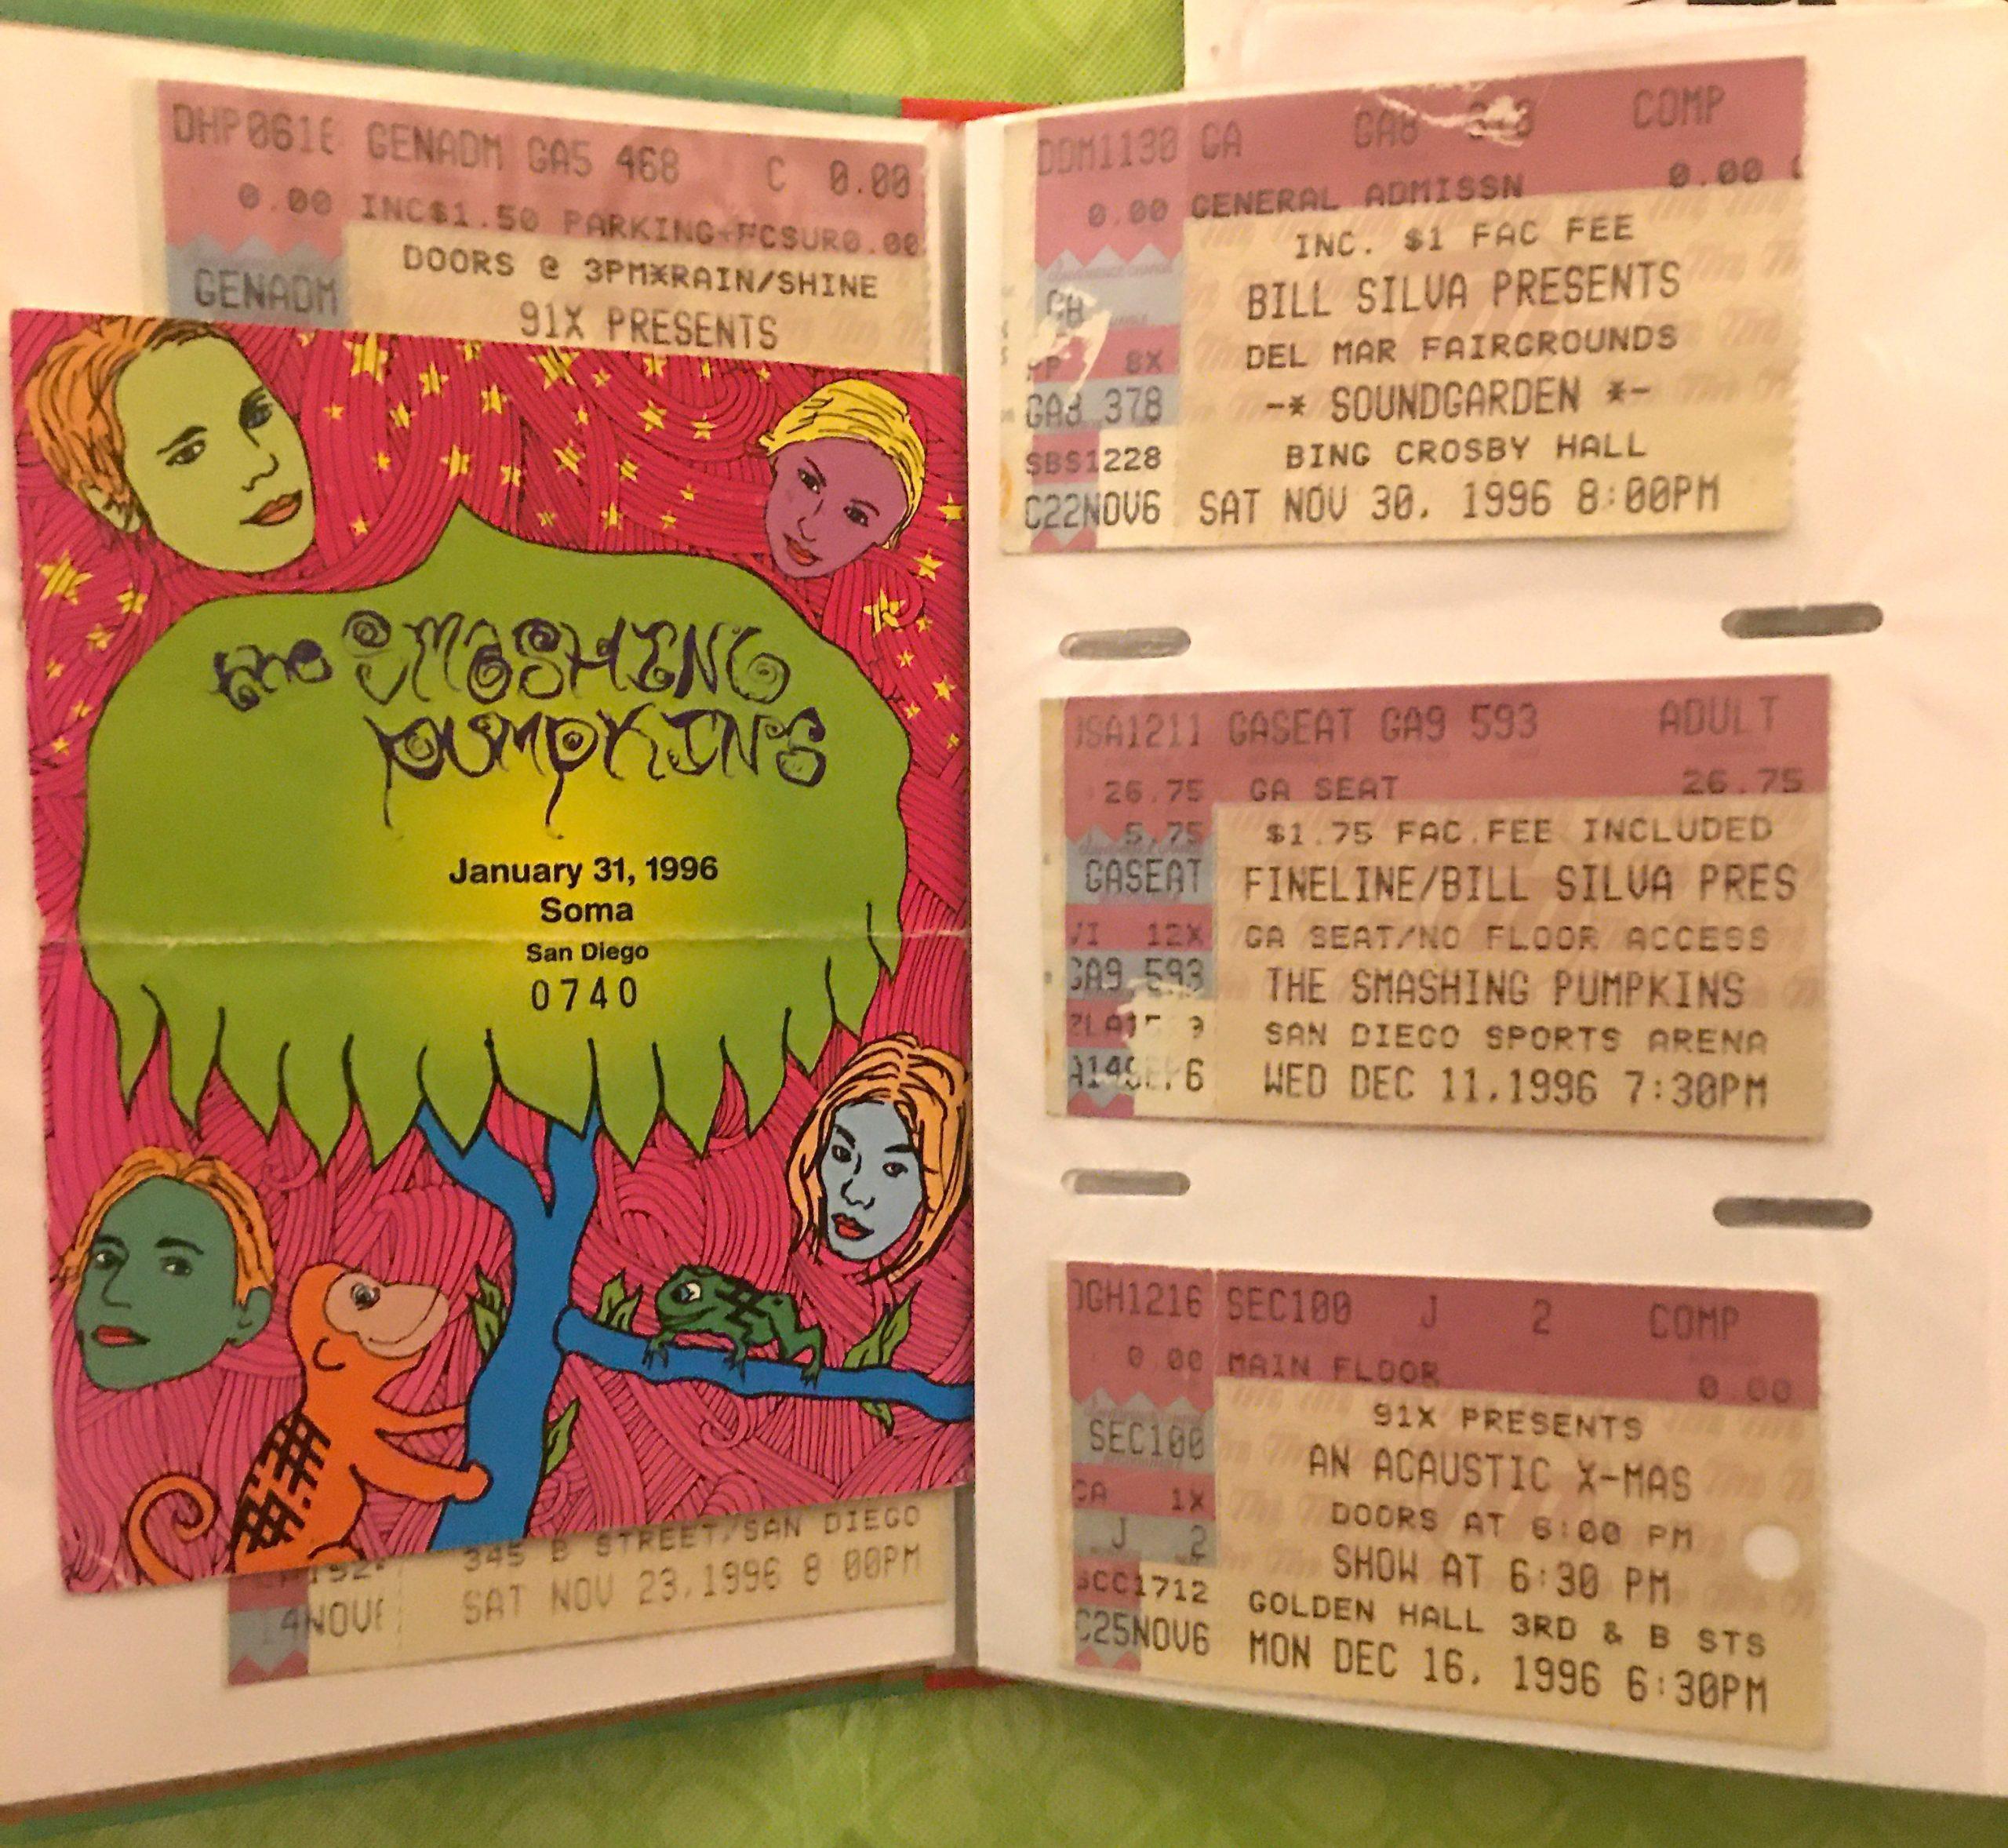 DHP061 GENADM GA5 468 C 0.00
0.00 INC$1.50 PARKING+FCSUR0.00
DOORS @ 3PM*RAIN/SHINE
GENADM
91X PRESENTS
the SMASHING
PUMPKINS
January 31, 1996
Soma
San Diego
0740
345 B STREET/SAN DIEGO
14NOV
SAT NOV 23,1996 8 00PM
DDM1130 GA GA8 COMP
0.00 GENERAL ADMISSN 0.00
INC. $1 FAC FEE
GA BILL SILVA PRESENTS
8X DEL MAR FAIRGROUNDS
GA8 378 -* SOUNDGARDEN *-
SBS1228 BING CROSBY HALL
C22NOV6 SAT NOV 30, 1996 8:00PM
SA1211 GASEAT GA9 593 ADULT
26.75 GA SEAT 26.75
5.75 $1.75 FAC.FEE INCLUDED
GASEAT FINELINE/BILL SILVA PRES
VI 12X GA SEAT/NO FLOOR ACCESS
GA9 593 THE SMASHING PUMPKINS
SAN DIEGO SPORTS ARENA
WED DEC 11,1996 7:30PM
GH1216 SEC100 J 2 COMP
0.00 MAIN FLOOR 0.00
91X PRESENTS
SEC100 AN ACAUSTIC X-MAS
CA 1X DOORS AT 6:00 PM
J 2 SHOW AT 6:30 PM
SCC1712 GOLDEN HALL 3RD & B STS
C25NOV6 MON DEC 16, 1996 6:30PM